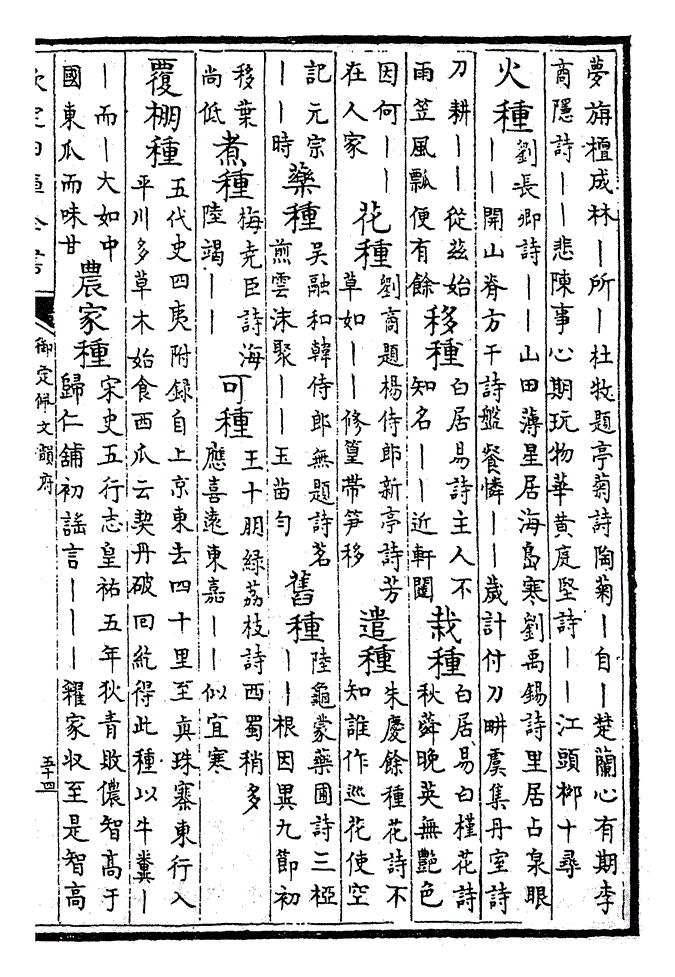 夢旃檀成林｜所｜杜牧題亭菊詩陶菊｜自｜楚蘭心有期李
商隱詩｜｜悲陳事心期玩物華黃庭堅詩｜｜江頭栁十尋
火種
劉長卿詩｜｜山田薄星居海島寒劉禹錫詩里居占泉眼
｜｜開山脊方干詩盤餐憐｜｜歲計付刀畊虞集丹室詩
刀耕｜｜從兹始
雨笠風瓢便有餘
移種
白居易詩主人不
知名｜｜近軒闥
栽種
白居易白槿花詩
秋蕣晚英無艷色
因何｜｜
在人家
花種
劉商題楊侍郎新亭詩芳
草如｜｜修篁帶笋移
遣種
朱慶餘種花詩不
知誰作巡花使空
記元宗
｜｜時
藥種
吳融和韓侍郎無題詩茗
煎雲沫聚｜｜玉苗勻
舊種
陸龜蒙藥圃詩三椏
｜｜根因異九節初
移葉
尚低
煮種
梅堯臣詩海
陸竭｜｜
可種
王十朋綠荔枝詩西蜀稍多
應喜遠東嘉｜｜似宜寒
覆棚種
五代史四夷附錄自上京東去四十里至真珠寨東行入
平川多草木始食西瓜云契丹破回紇得此種以牛糞｜
｜而｜大如中
國東瓜而味甘
農家種
宋史五行志皇祐五年狄青敗儂智高于
歸仁舖初謠言｜｜｜糴家収至是智高
欽定四庫全書
御定佩文韻府
五十四